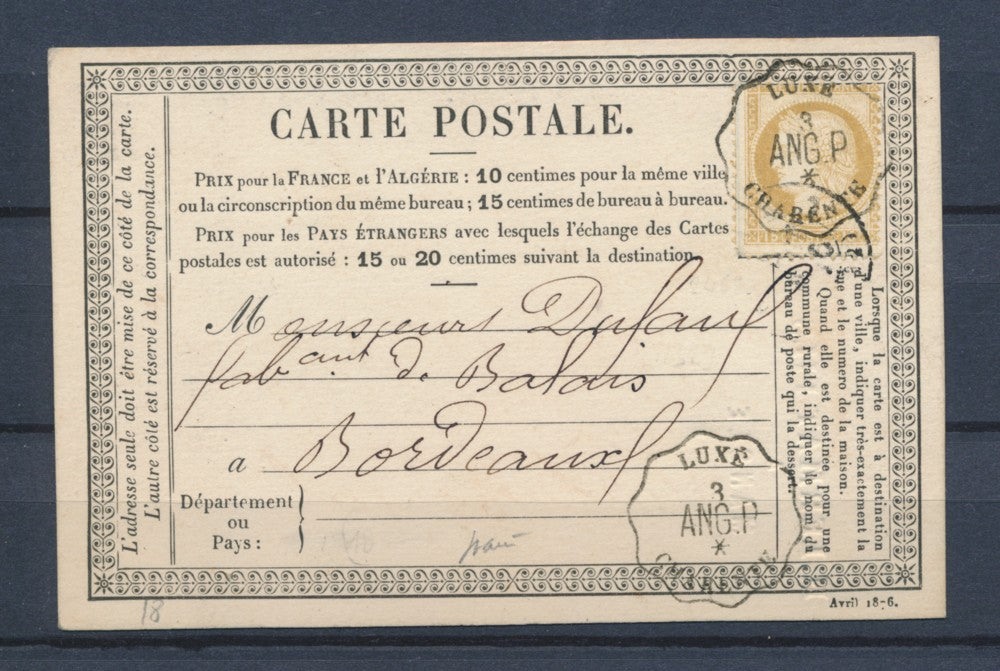 CARTE POSTALE.
PRIX pour la FRANCE et l'ALGÉRIE : 10 centimes pour la même ville
ou la circonscription du même bureau ; 15 centimes de bureau à bureau.
PRIX pour les PAYS ÉTRANGERS avec lesquels l'échange des Cartes
postales est autorisé : 15 ou 20 centimes suivant la destination
Monsieur Dufau
fabcant de Balais
a Bordeaux
Département
ou
Pays :
L'adresse seule doit être mise de ce côté de la carte.
L'autre côté est réservé à la correspondance.
Lorsque la carte est à destination
d'une ville, indiquer très-exactement la
rue et le numéro de la maison.
Quand elle est destinée pour une
commune rurale, indiquer le nom du
bureau de poste qui la dessert.
LUXE
3
ANG.P
*
CHARENTE
LUXE
3
ANG.P
*
CHARENTE
18
Avril 18-6.